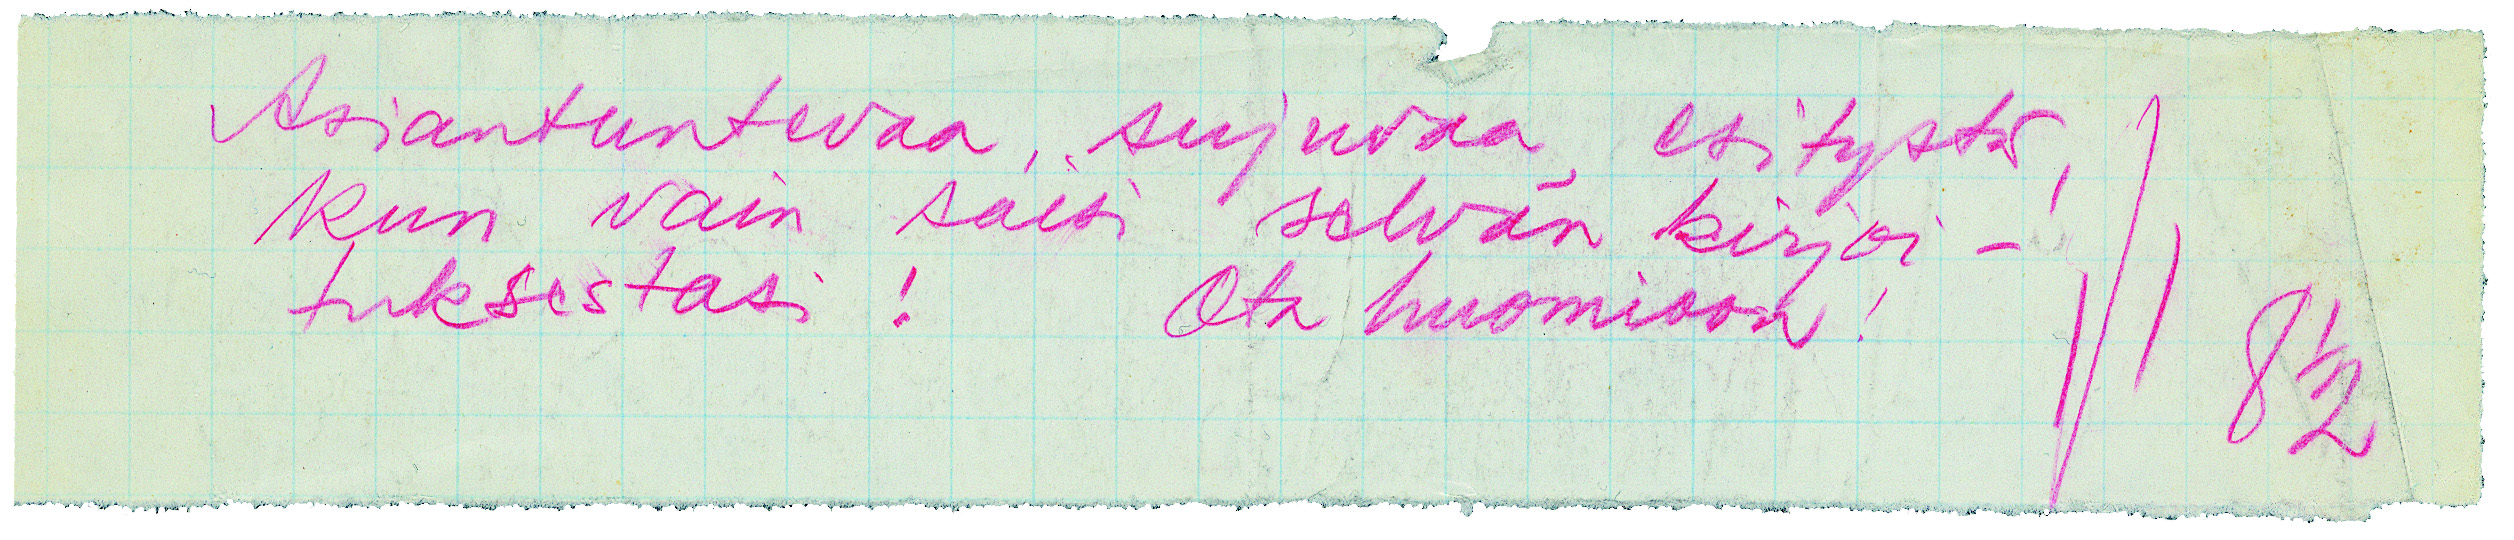 Asiantuntevaa, sujuvaa esitystä,
kun vain saisi selvän kirjoi-
tuksestasi! Ota huomioon!
8 1/2